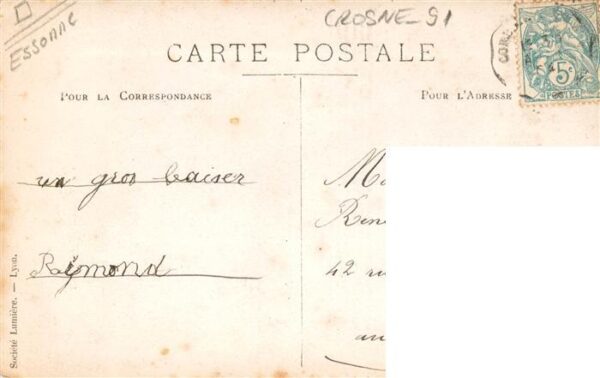 ESSONNE
CROSNE_91
CARTE POSTALE
POUR LA CORRESPONDANCE
POUR L'ADRESSE
5c
POSTES
un gros baiser
Reymond
42
Société Lumière. — Lyon.